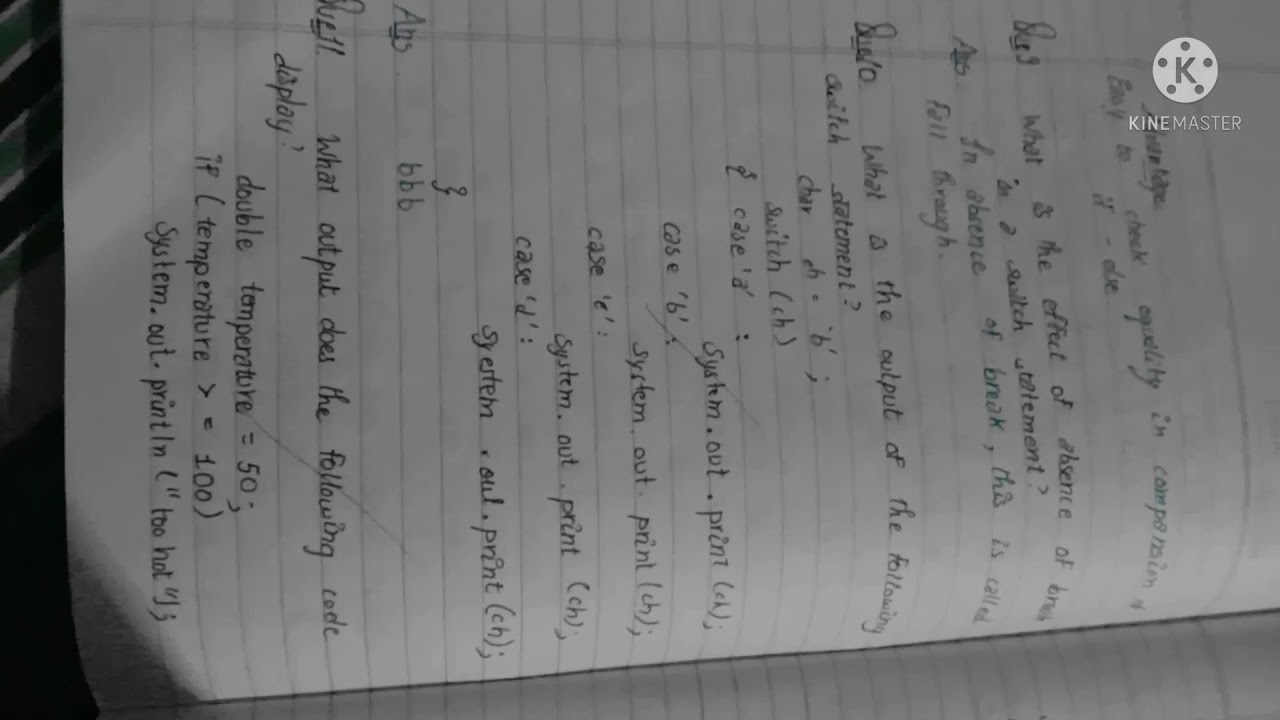 Advantage
Easy to check equality in comparison of
if - else.
Que9 What is the effect of absence of break
in a switch statement?
Ans. In absence of break, this is called
fall through.
Que10 What is the output of the following
switch statement?
char ch = 'b';
switch (ch)
{ case 'a' :
System.out.print (ch);
case 'b':
System.out.print (ch);
case 'c':
System.out.print (ch);
case 'd':
System.out.print (ch);
}
Ans. bbb
Que11. What output does the following code
display?
double temperature = 50;
if (temperature > = 100)
System.out.println ("too hot");
K
KINEMASTER